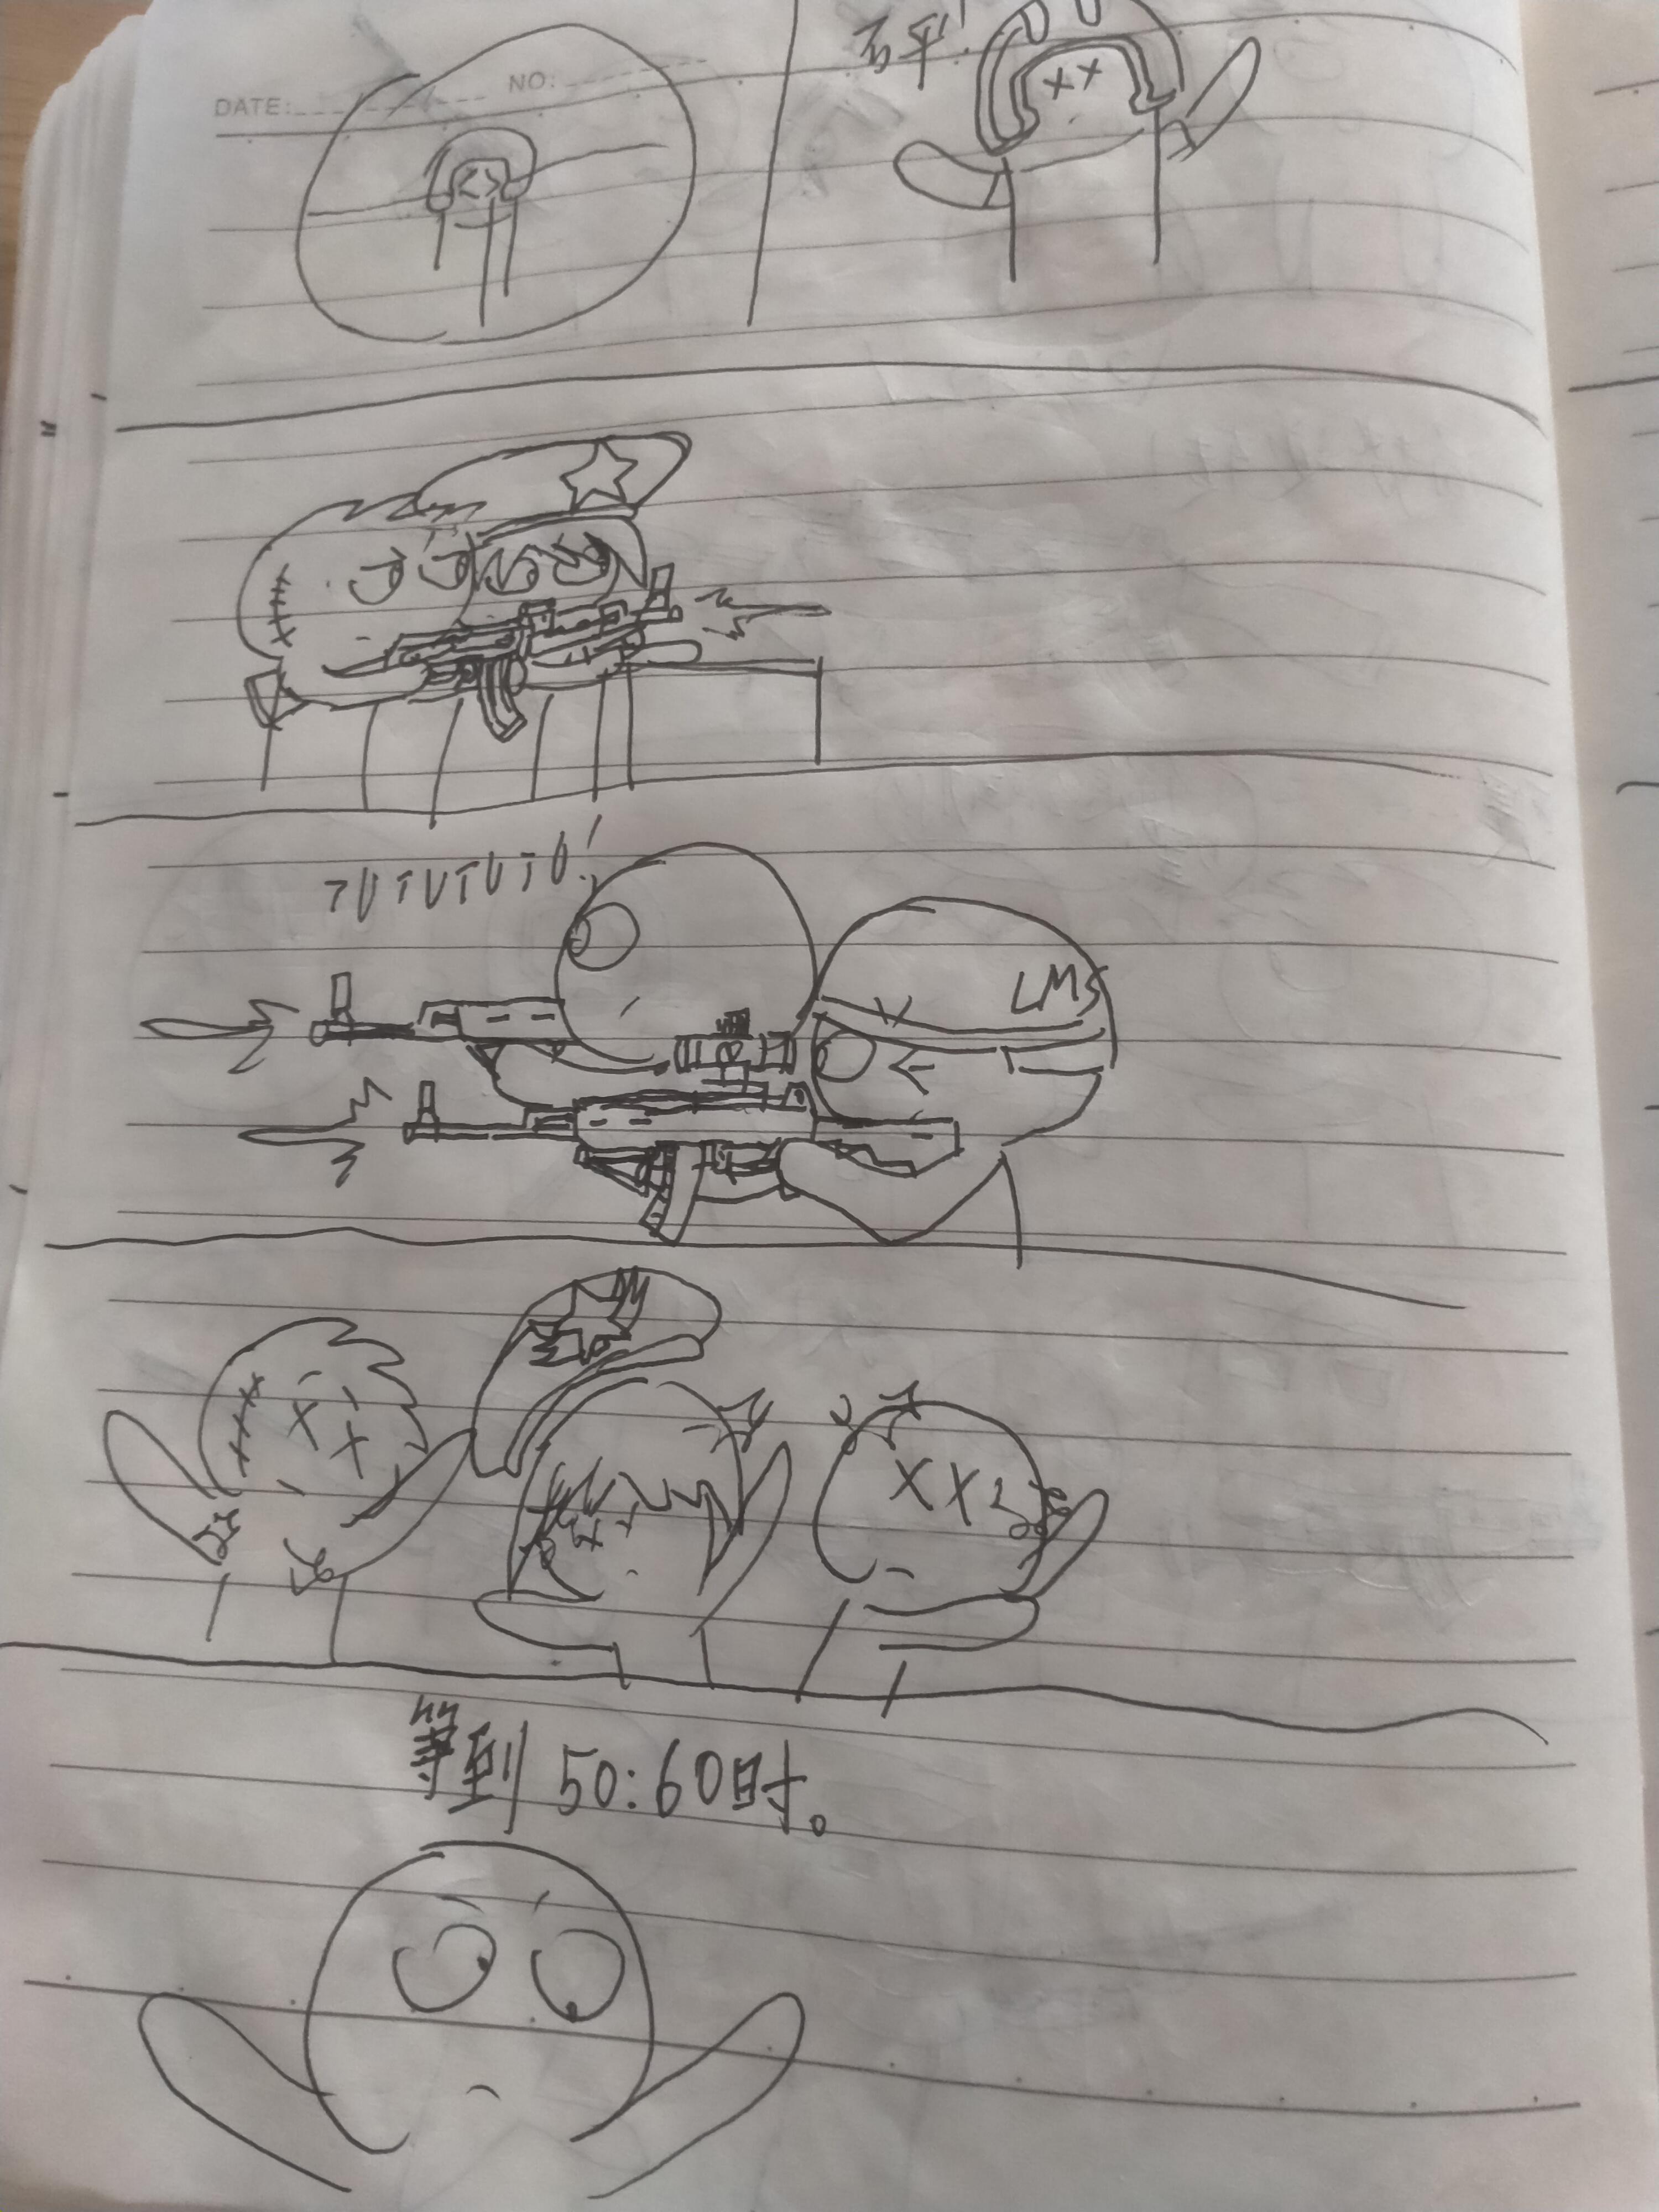 DATE:
NO:
TUTUTUTU!
LMS
等到 50:60时。